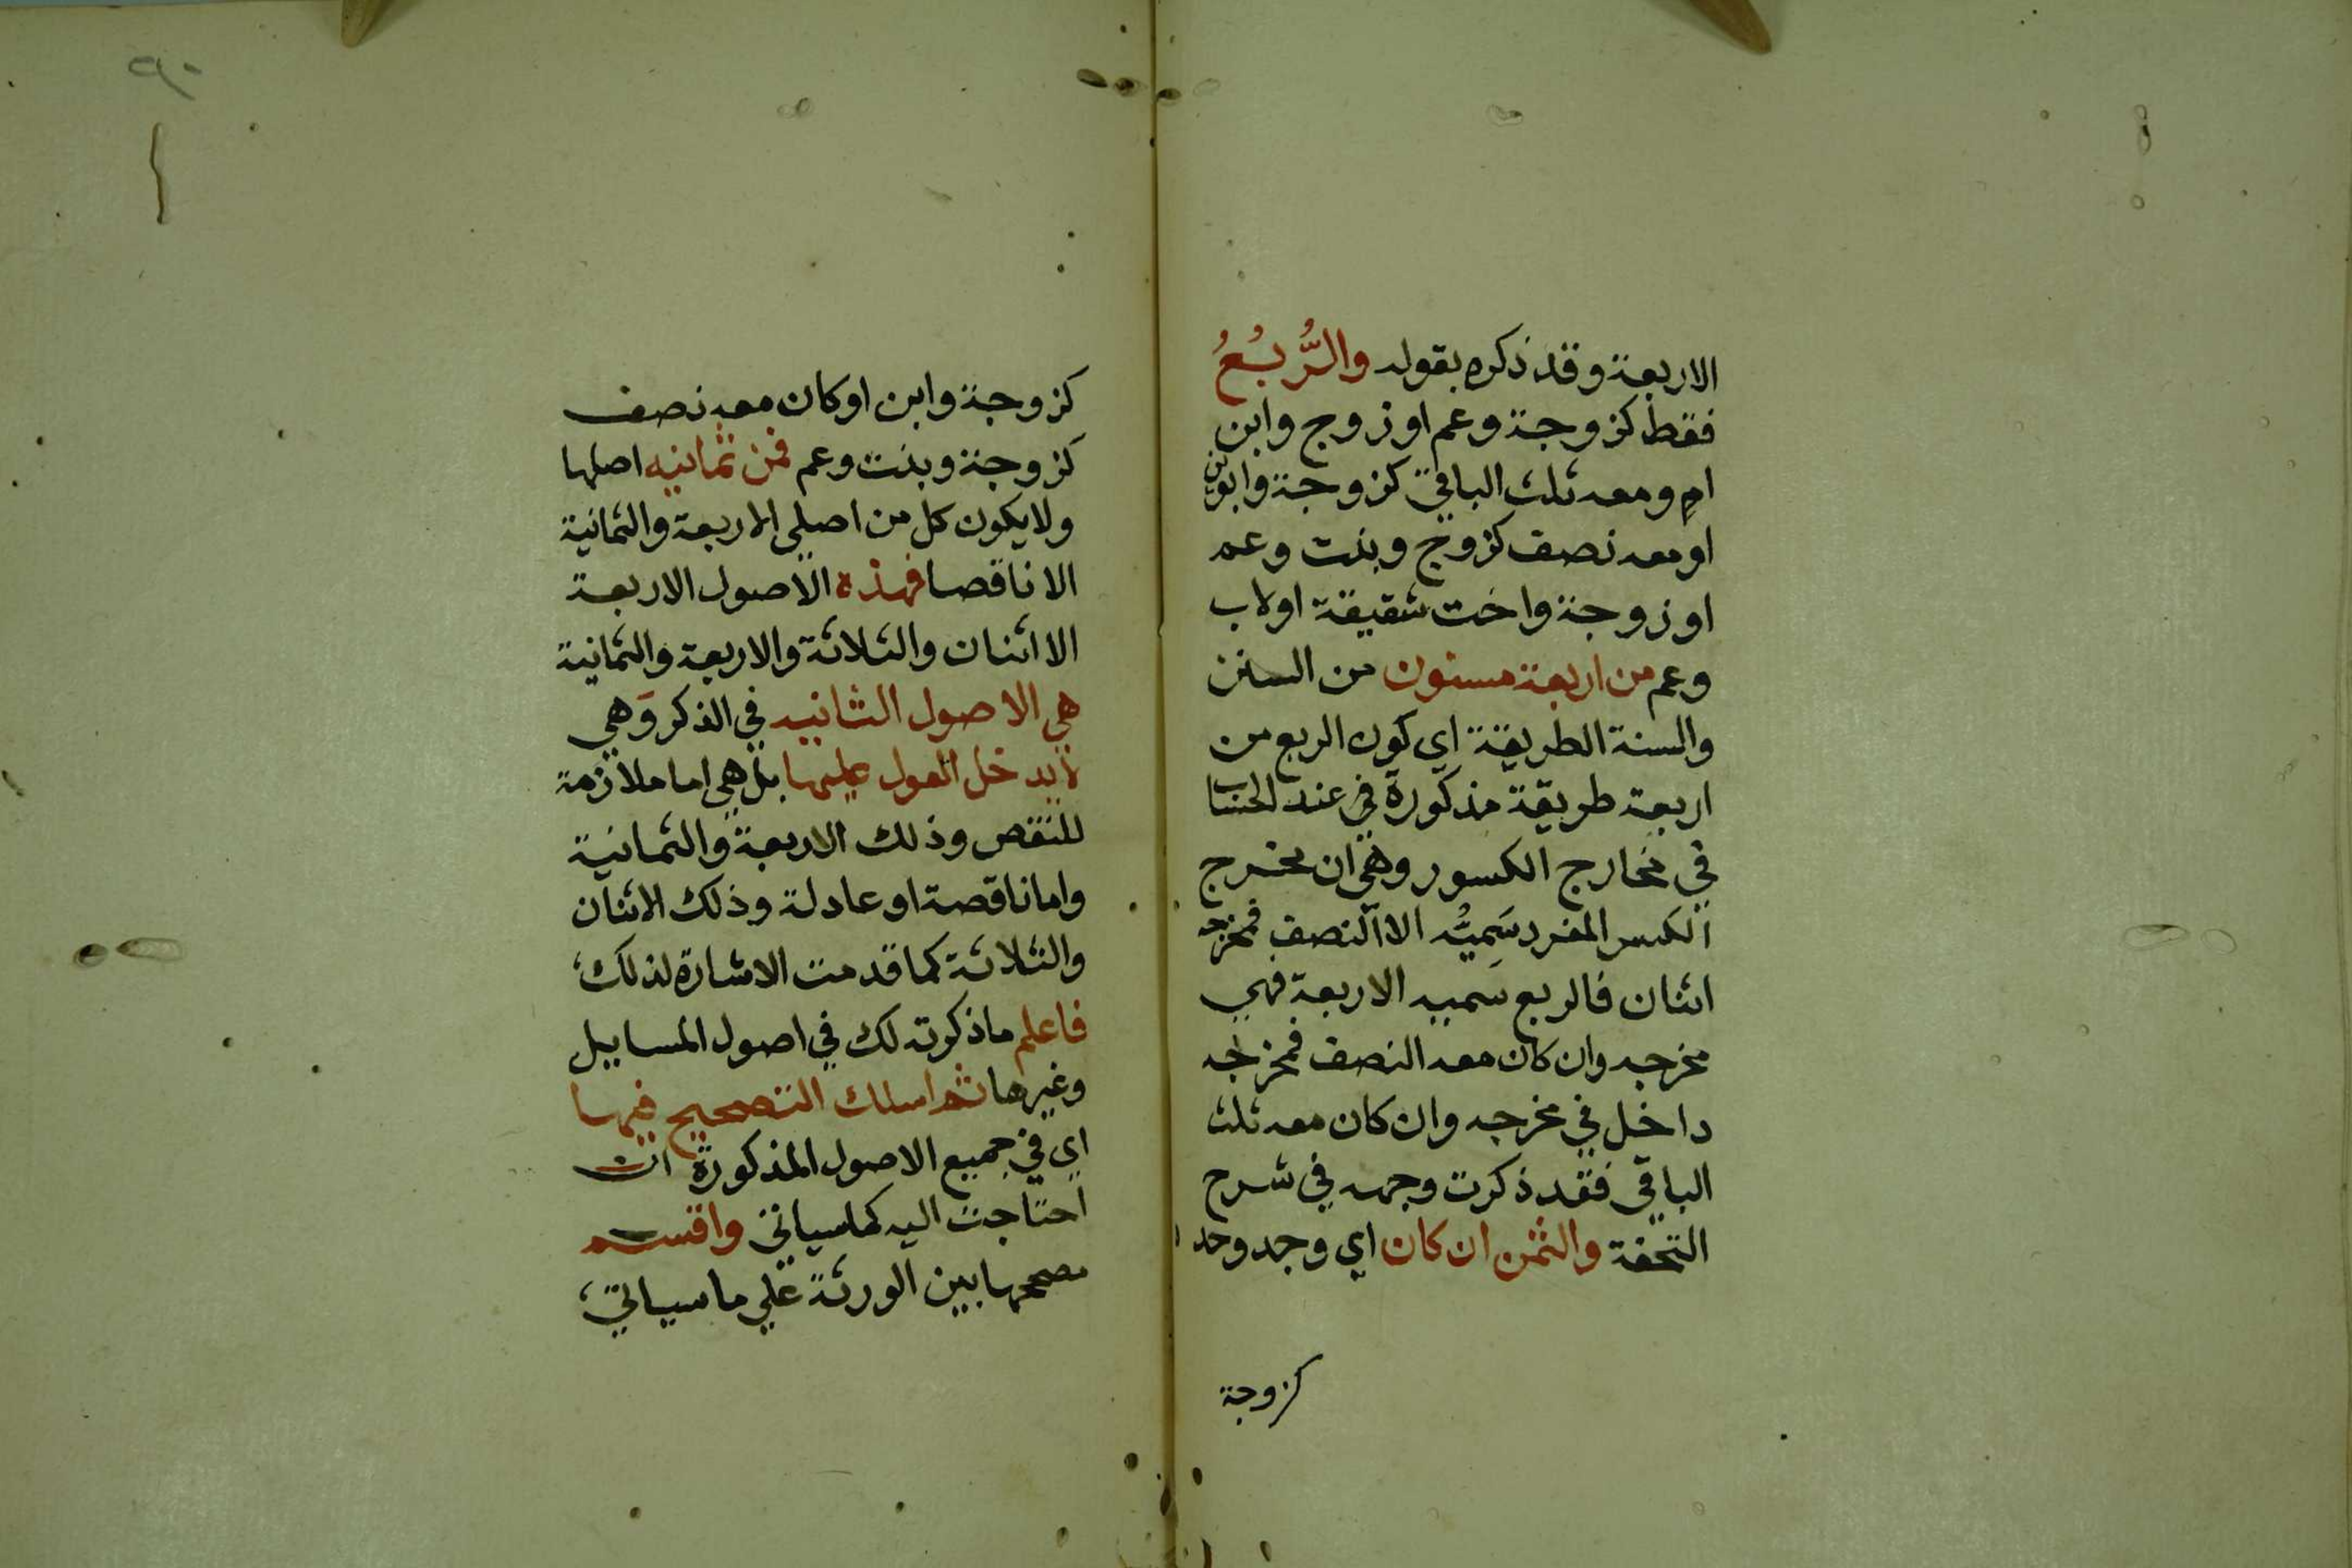 الاربعة وقد ذكره بقوله والرُّبُعُ
فقط كزوجة وعم او زوج وابن
ام ومعه ثلث الباقي كزوجة وابوين
او معه نصف كزوج وبنت وعم
او زوجة واخت شقيقة او لاب
وعم من اربعة مسنون من السنن
والسنة الطريقة اي كون الربع من
اربعة طريقة مذكورة في عند الحساب
في مخارج الكسور وهي ان مخرج
الكسر المفرد سَمِيُّه الا النصف فمخرجه
اثنان فالربع سميه الاربعة فهي
مخرجه وان كان معه النصف فمخرجه
داخل في مخرجه وان كان معه ثلث
الباقي فقد ذكرت وجهه في شرح
التحفة والثمن ان كان اي وجد وحده
كزوجة
٩٠
كزوجة وابن او كان معه نصف
كزوجة وبنت وعم فمن ثمانيه اصلها
ولا يكون كل من اصلي الاربعة والثمانية
الا ناقصا فهذه الاصول الاربعة
الاثنان والثلاثة والاربعة والثمانية
هي الاصول الثانيه في الذكر وَهي
لا يدخل العول عليها بل هي اما ملازمة
للنقص وذلك الاربعة والثمانية
واما ناقصة او عادلة وذلك الاثنان
والثلاثة كما قدمت الاشارة لذلك
فاعلم ما ذكرته لك في اصول المسايل
وغيرها ثم اسلك التصحيح فيها
اي في جميع الاصول المذكورة ان
احتاجت اليه كما سياتي واقسم
مصححها بين الورثة علي ما سياتي